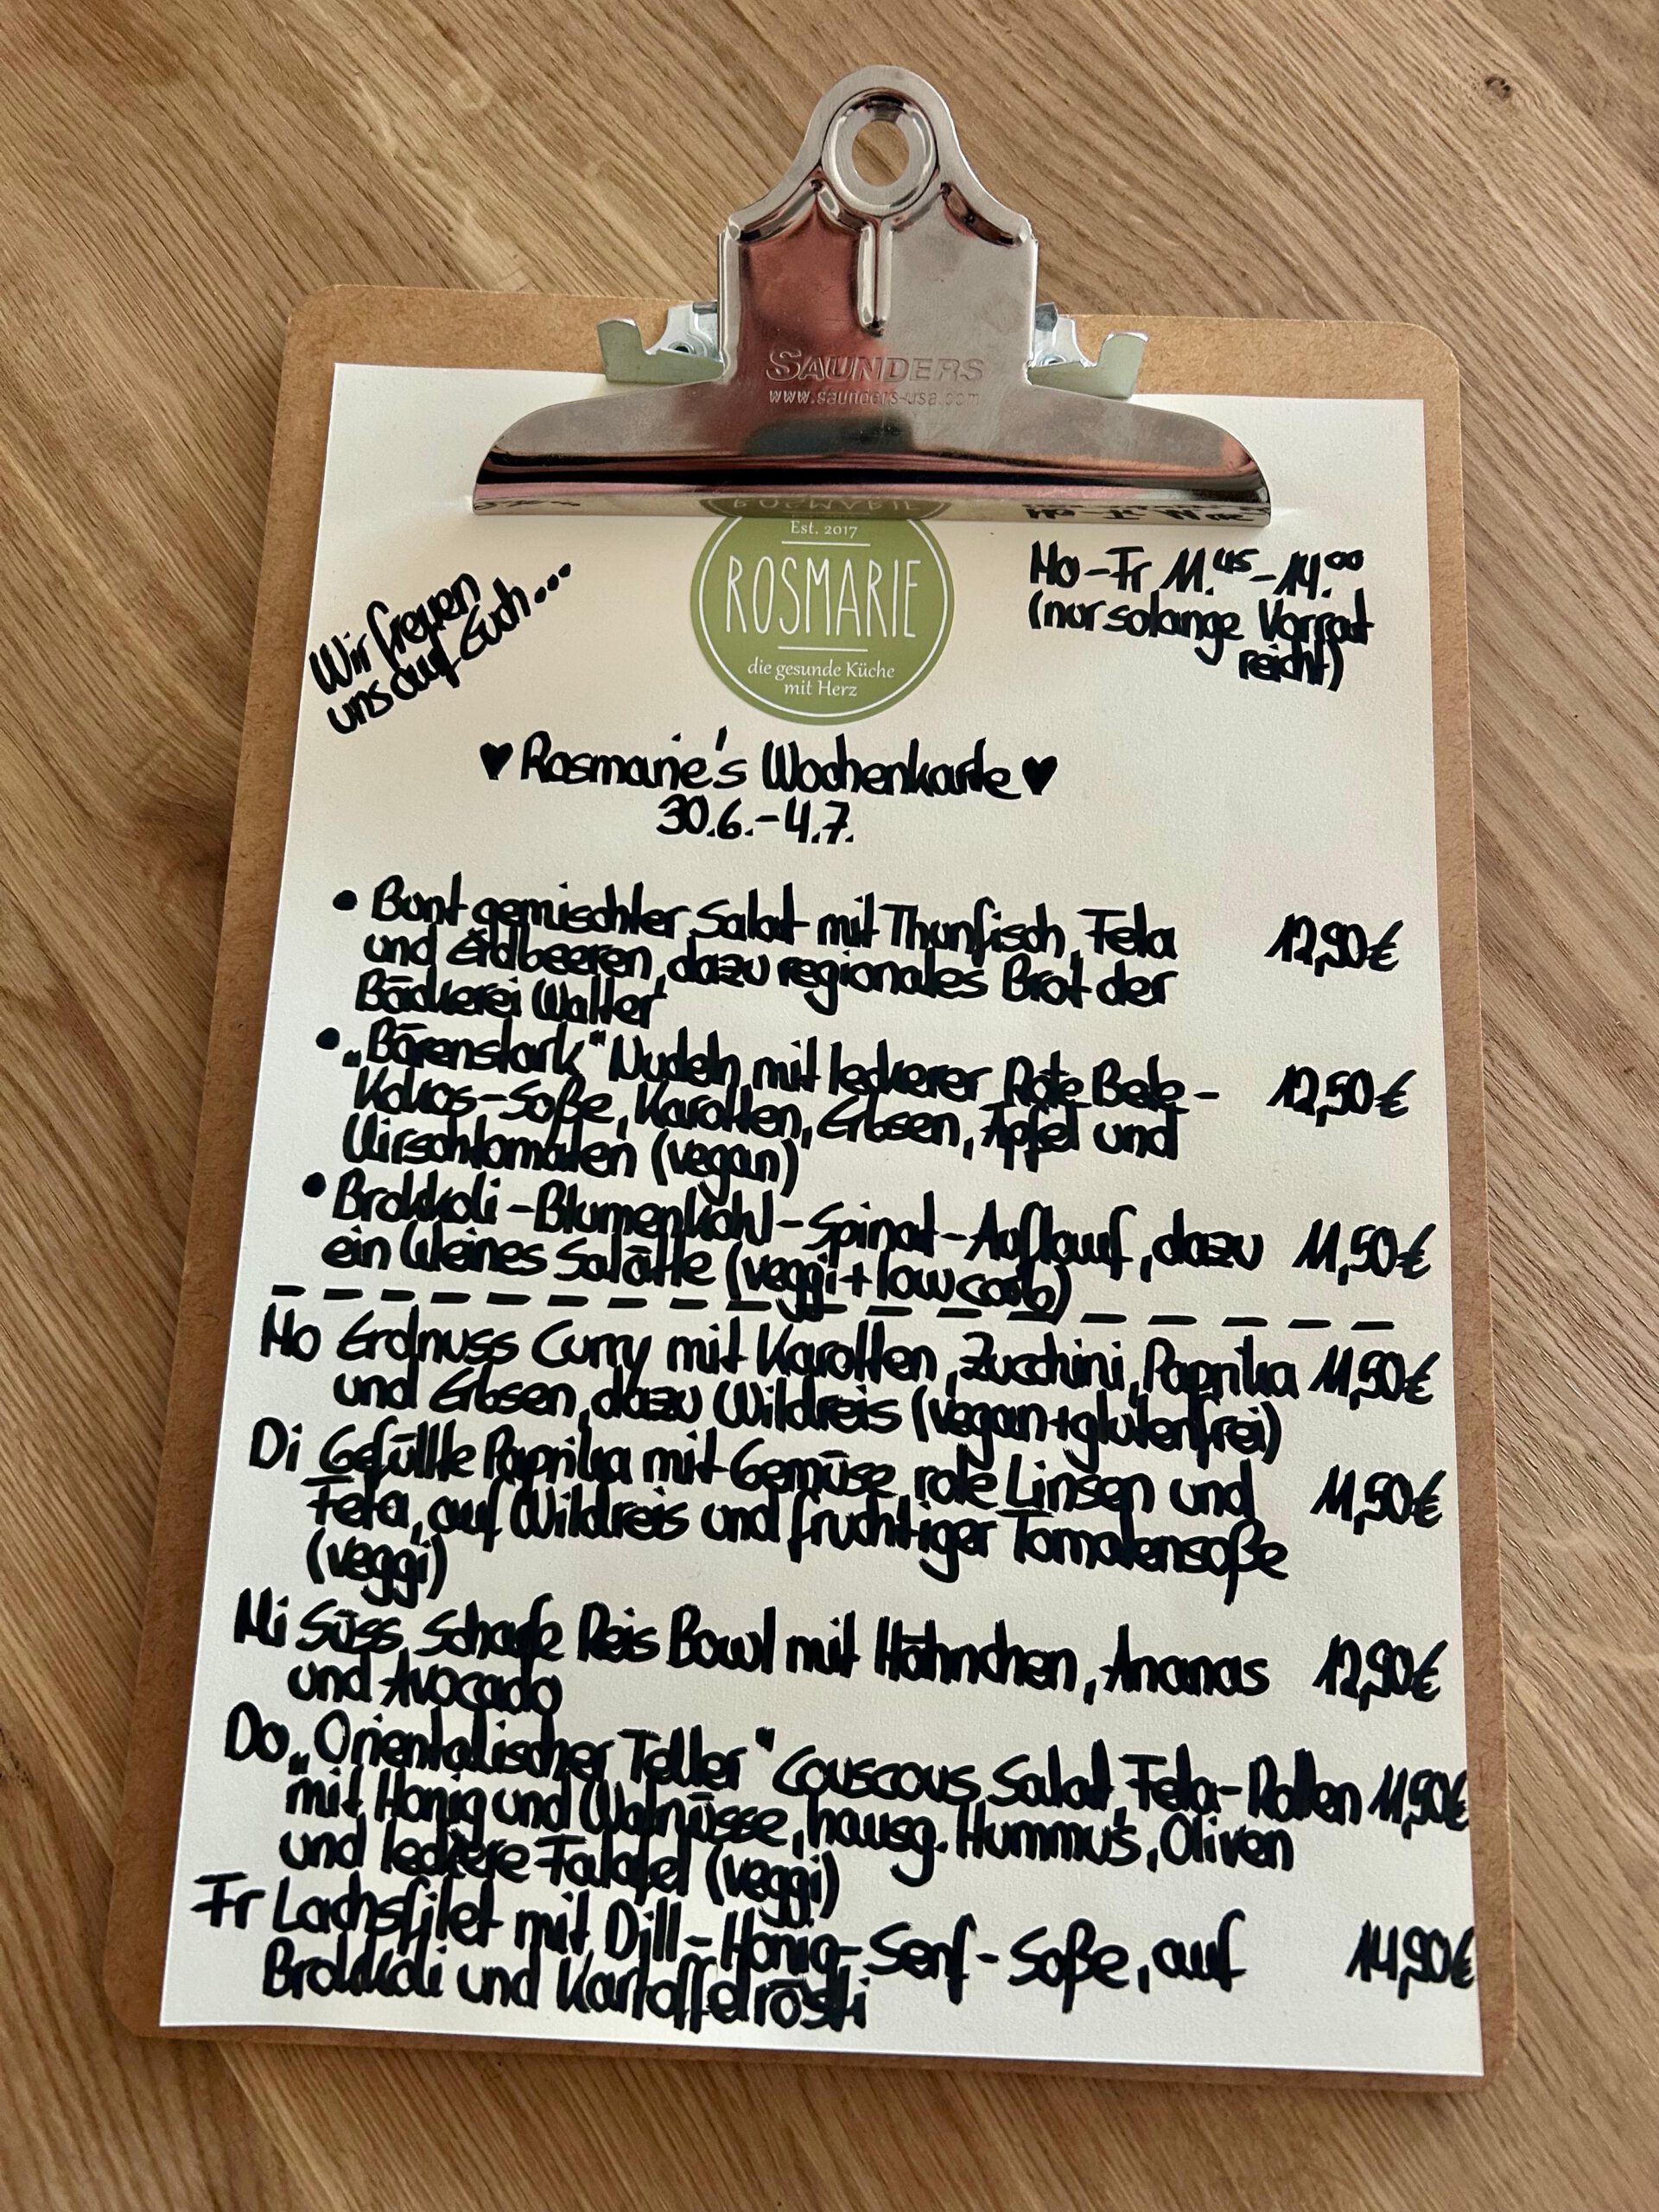 SAUNDERS
www.saunders-usa.com
Est. 2017
ROSMARIE
die gesunde Küche
mit Herz
Wir freuen
uns auf Euch...
Mo-Fr 11.45-14.00
(nur solange Vorrat
reicht)
♥ Rosmarie's Wochenkarte ♥
30.6.-4.7.
• Bunt gemischter Salat mit Thunfisch, Feta 12,90€
und Erdbeeren, dazu regionales Brot der
Bäckerei Walter
• „Bärenstark" Nudeln mit leckerer Rote Bete- 12,50€
Kokos-Soße, Karotten, Erbsen, Apfel und
Kirschtomaten (vegan)
• Brokkoli-Blumenkohl-Spinat-Auflauf, dazu 11,50€
ein kleines Salätle (veggi+lowcarb)
Mo Erdnuss Curry mit Karotten, Zucchini, Paprika 11,50€
und Erbsen, dazu Wildreis (vegan+glutenfrei)
Di Gefüllte Paprika mit Gemüse, rote Linsen und 11,50€
Feta, auf Wildreis und fruchtiger Tomatensoße
(veggi)
Mi Süss, scharfe Reis Bowl mit Hähnchen, Ananas 12,90€
und Avocado
Do „Orientalischer Teller" Couscous Salat, Feta-Rollen 11,90€
mit Honig und Walnüsse, hausg. Hummus, Oliven
und leckere Falafel (veggi)
Fr Lachsfilet mit Dill-Honig-Senf-Soße, auf 14,90€
Brokkoli und Kartoffelrösti